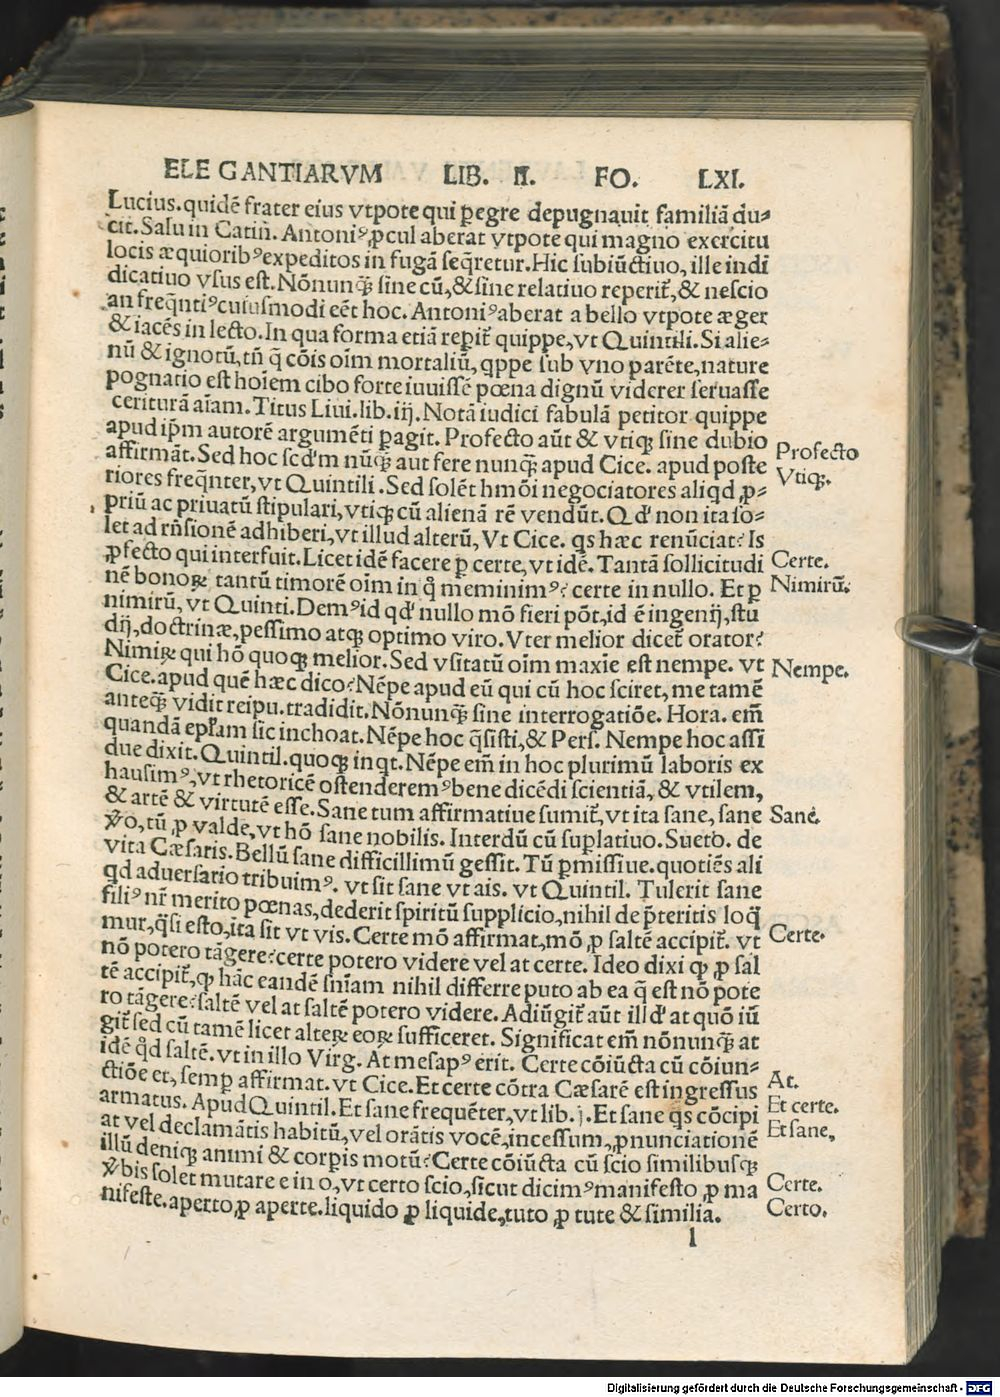 ELE GANTIARVM LIB. II. FO. LXI.
Lucius.quidē frater eius vtpote qui ꝑegre depugnauit familiā du⸗
cit.Salu in Catin. Antoniꝰ,ꝓcul aberat vtpote qui magno exercitu
locis æquioribꝰexpeditos in fugā seq̄retur.Hic subiūctiuo, ille indi
dicatiuo vsus est. Nōnunq̄ sine cū,&sine relatiuo reperit̃,& nescio
an freq̄ntiꝰcuiusmodi eēt hoc. Antoniꝰaberat a bello vtpote æger
& iacēs in lecto.In qua forma etiā repit̃ quippe,vt Quintili. Si alie⸗
nū & ignotū,tñ q̄ cōis oīm mortaliū, qppe sub vno parēte,nature
pognatio est hoīem cibo forte iuuissē pœna dignū viderer seruasse
ceriturā aīam. Titus Liui.lib.iij. Notā iudici fabulā petitor quippe
apud ip̄m autorē argumēti ꝑagit. Profecto aūt & vtiqꝫ sine dubio
affirmāt. Sed hoc scd'm nūq̄ꝫ aut fere nunq̄ꝫ apud Cice. apud poste
riores freq̄nter, vt Quintili. Sed solēt hmōi negociatores aliqd ꝓ⸗
priū ac priuatū stipulari,vtiqꝫ cū alienā rē vendūt. Qd' non ita so⸗
let ad rñsionē adhiberi, vt illud alterū, Vt Cice. qs hæc renūciat? Is
ꝓfecto qui interfuit. Licet idē facere ꝑ certe, vt idē. Tantā sollicitudi
nē bonoꝝ tantū timorē oīm in q̊ meminimꝰ? certe in nullo. Et ꝑ
nimirū, vt Quinti. Demꝰid qd' nullo mō fieri pōt,id ē ingenij,stu
dij,doctrinæ,pessimo atqꝫ optimo viro. Vter melior dicet̃ orator?
Nimiꝝ qui hō quoqꝫ melior. Sed vsitatū oīm maxīe est nempe. vt
Cice.apud quē hæc dico? Nēpe apud eū qui cū hoc sciret, me tamē
anteqꝫ̄ vidit reipu.tradidit. Nōnunqꝫ̄ sine interrogatiōe. Hora. em̄
quandā epłam sic inchoat. Nēpe hoc q̄sisti,& Pers. Nempe hoc assi
due dixit. Quintil.quoqꝫ inqt. Nēpe em̄ in hoc plurimū laboris ex
hausimꝰ,vt rhetoricē ostenderemꝰbene dicēdi scientiā, & vtilem,
& artē & virtutē esse. Sane tum affirmatiue sumit̃, vt ita sane, sane
v̊o,tū,ꝓ valde,vt hō sane nobilis. Interdū cū suplatiuo. Sueto. de
vita Cæsaris. Bellū sane difficillimū gessit. Tū ꝑmissiue.quotiēs ali
qd aduersario tribuimꝰ. vt sit sane vt ais. vt Quintil. Tulerit sane
filiꝰ nr̄ merito pœnas,dederit spiritū supplicio,nihil de p̄teritis loq̄
mur,q̄si esto,ita sit vt vis. Certe mō affirmat,mō ꝓ saltē accipit̃. vt
nō potero tāgere?certe potero videre vel at certe. Ideo dixi ꝙ ꝓ sal
tē accipit̃,ꝙ hāc eandē sñiam nihil differre puto ab ea q̄ est nō pote
ro tāgere?saltē vel at saltē potero videre. Adiūgit̃ aūt illd' at quō iū
git̃ sed cū tamē licet alteꝝ eoꝝ sufficeret. Significat em̄ nōnunqꝫ̄ at
idē q̊d saltē. vt in illo Virg. At mesapꝰ erit. Certe cōiūcta cū cōiun⸗
ctiōe et, semꝑ affirmat. vt Cice. Et certe cōtra Cæsarē est ingressus
armatus. Apud Quintil. Et sane frequēter, vt lib.j. Et sane qs cōcipi
at vel declamātis habitū,vel orātis vocē,incessum,,ꝓnunciationē
illū deniqꝫ animi & corꝑis motū? Certe cōiūcta cū scio similibusqꝫ
v̊bis solet mutare e in o, vt certo scio,sicut dicimꝰmanifesto ꝓ ma
nifeste.aperto,ꝓ aperte.liquido ꝓ liquide,tuto ꝓ tute & similia.
l
Profecto
Vtiqꝫ.
Certe.
Nimirū.
Nempe.
Sane.
Certe.
At.
Et certe.
Et sane,
Certe.
Certo.
Digitalisierung gefördert durch die Deutsche Forschungsgemeinschaft - DFG